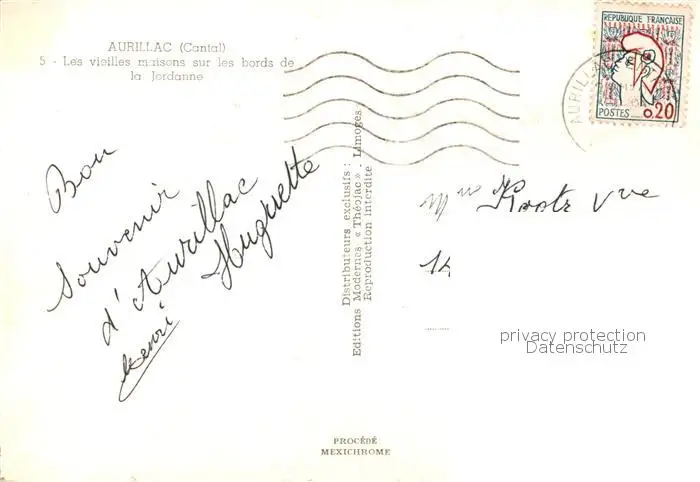 AURILLAC (Cantal)
5 - Les vieilles maisons sur les bords de
la Jordanne
Bon
Souvenir
d'Aurillac
Huguette
Henri
Distributeurs exclusifs :
Editions Modernes « Théojac » . Limoges
Reproduction interdite
REPUBLIQUE FRANÇAISE
POSTES 0,20
AURILLA
14
privacy protection
Datenschutz
PROCÉDÉ
MEXICHROME